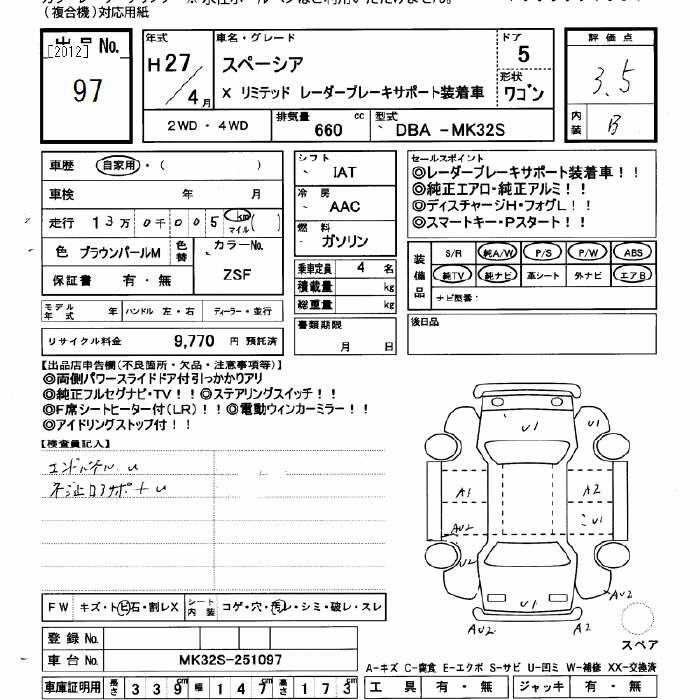 (複合機)対応用紙
出品No.
[2012]
97
年式
H27/4月
車名・グレード
スペーシア
X リミテッド レーダーブレーキサポート装着車
ドア
5
形状
ワゴン
評価点
3.5
内装
B
2WD・4WD
排気量 660 cc
型式 DBA -MK32S
車歴 自家用・( )
車検 年 月
走行 13万0千005 km マイル ( )
色 ブラウンパールM
色替
カラーNo.
ZSF
保証書 有・無
モデル年式 年
ハンドル 左・右
ディーラー・並行
リサイクル料金 9,770 円 預託済
シフト
IAT
冷房
AAC
燃料
ガソリン
乗車定員 4 名
積載量 kg
総重量 kg
書類期限
月 日
セールスポイント
◎レーダーブレーキサポート装着車!!
◎純正エアロ・純正アルミ!!
◎ディスチャージH・フォグL!!
◎スマートキー・Pスタート!!
装備品
S/R 純A/W P/S P/W ABS
純TV 純ナビ 革シート 外ナビ エアB
ナビ型番:
後日品
【出品店申告欄(不良箇所・欠品・注意事項等)】
◎両側パワースライドドア付引っかかりアリ
◎純正フルセグナビ・TV!!◎ステアリングスイッチ!!
◎F席シートヒーター付(LR)!!◎電動ウィンカーミラー!!
◎アイドリングストップ付!!
【検査員記入】
U1
A1 A2
AU2 U1
U2 AU2
U1
AU2 A2
スペア
FW キズ・トビ石・割レX
シート内装 コゲ・穴・汚レ・シミ・破レ・スレ
登録No.
車台No. MK32S-251097
車庫証明用 長さ 339cm 幅 147cm 高さ 173cm
A-キズ C-腐食 E-エクボ S-サビ U-凹ミ W-補修 XX-交換済
工具 有・無 ジャッキ 有・無